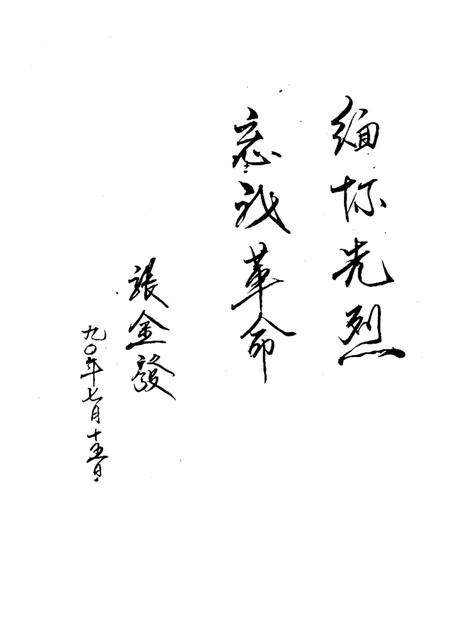 缅怀先烈
忘我革命
張金發
九〇年七月十五日